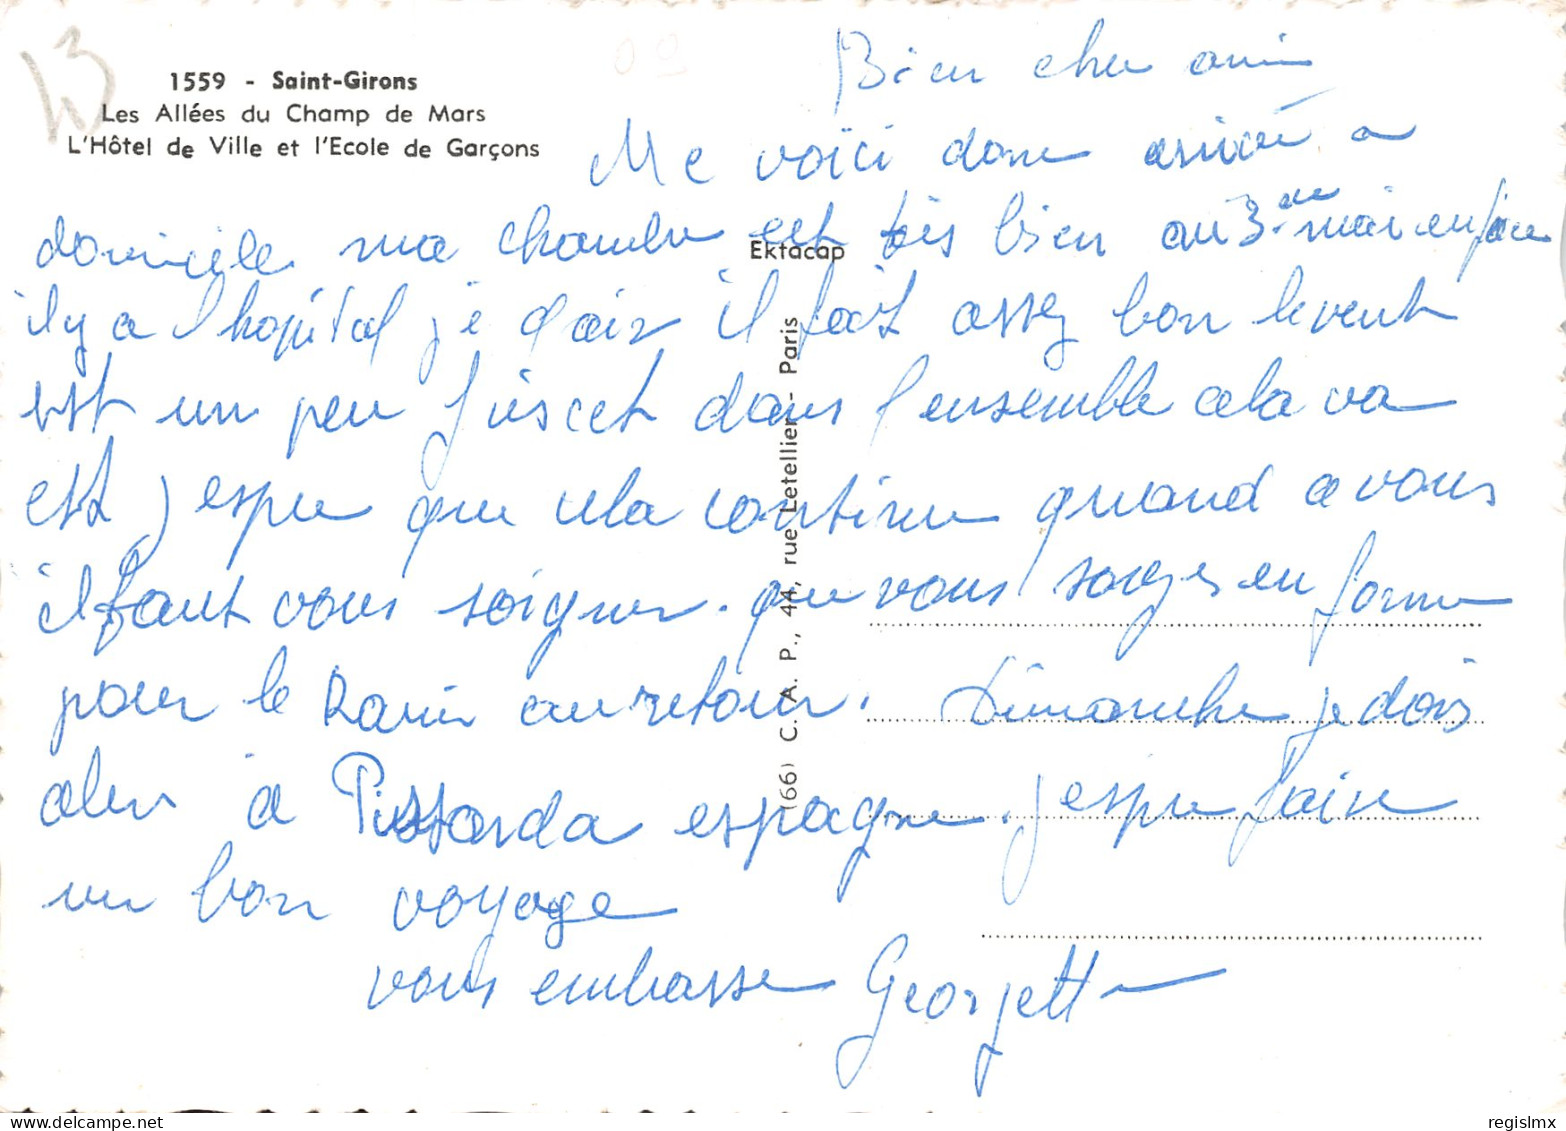 1559 - Saint-Girons
Les Allées du Champ de Mars
L'Hôtel de Ville et l'Ecole de Garçons
Bien cher ami
Me voici donc arrivé a
domicile ma chambre est très bien au 3eme mais en face
il y a l'hopital j'ai d'air il fait assez bon le vent
est un peu frisct dans l'ensemble cela va
est j espere que cela continue quand a vous
il faut vous soigner. que vous soyez en forme
pour le Rami au retour. Dimanche je dois
aler à Pissarda espagne. J espere faire
un bon voyage
vous embrasse Georgette
Ektacap
(66) C. A. P., 44, rue Letellier - Paris
13
regislmx